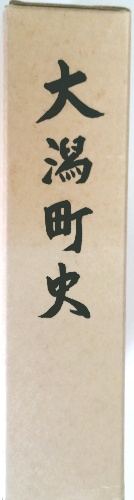 大潟町史